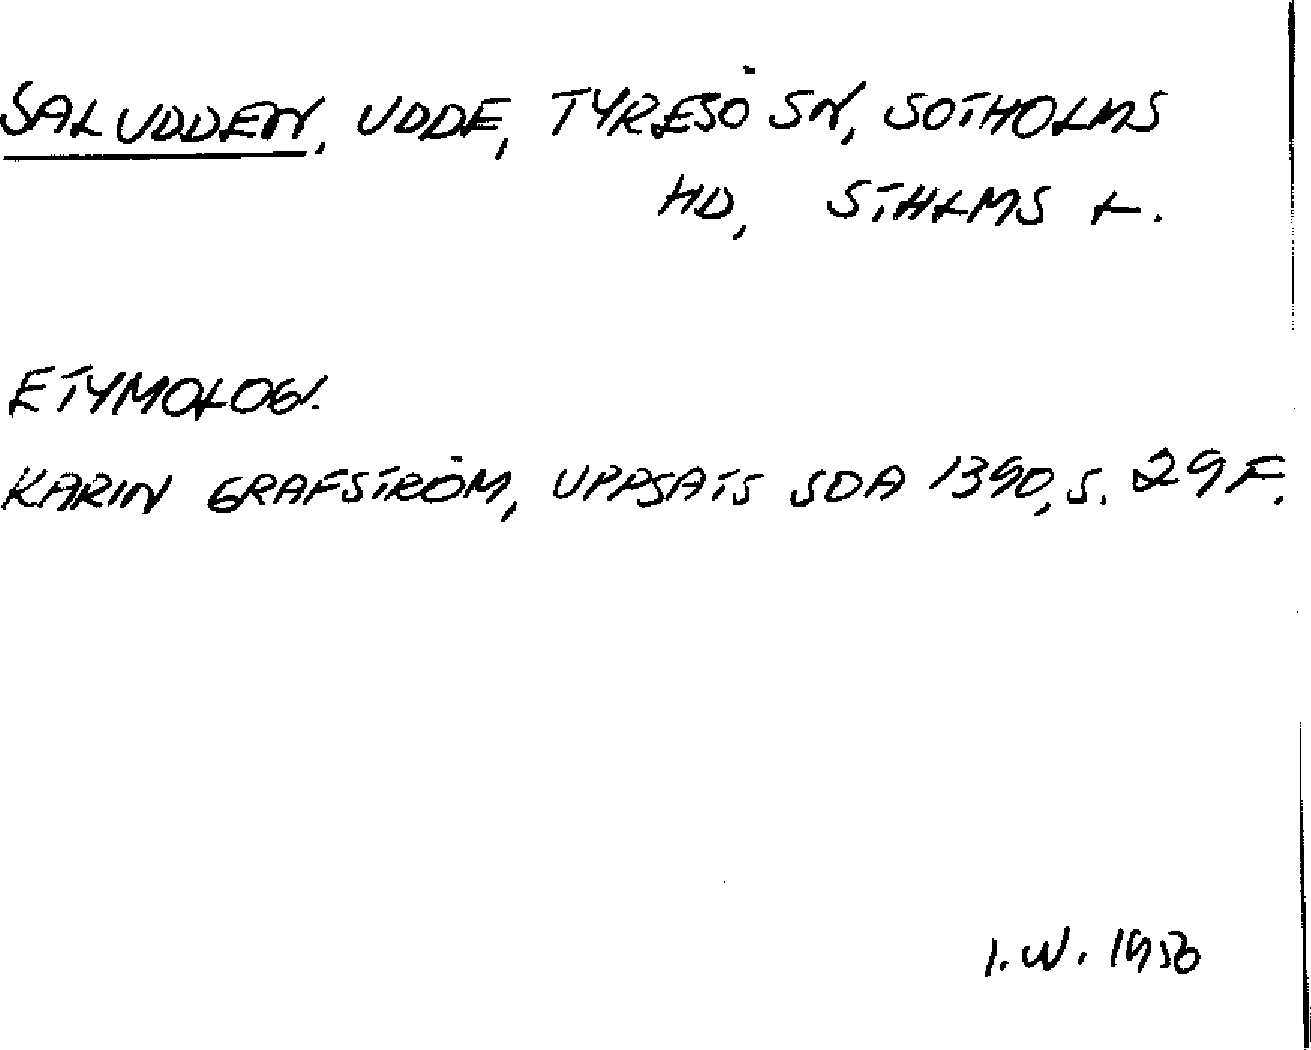 SALUDDEN, UDDE, TYRESÖ SN, SOTHOLMS
HD, STHLMS L.
ETYMOLOGI.
KARIN GRAFSTRÖM, UPPSATS SOA 1390, S. 29 F.
I. W.